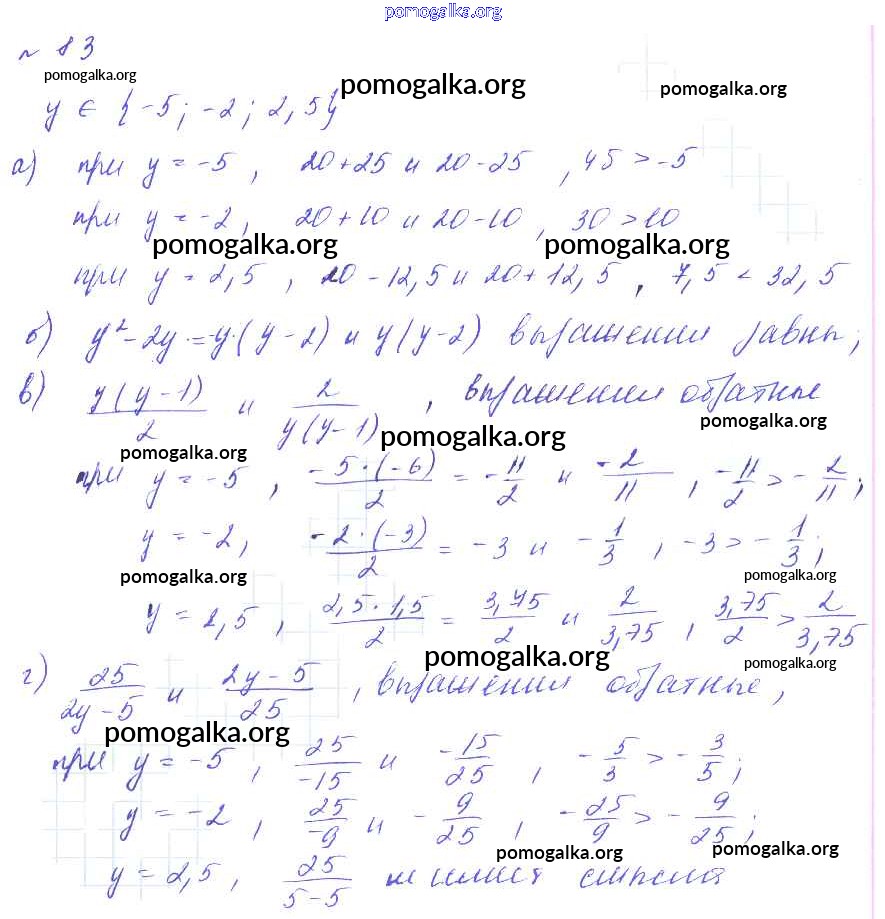 pomogalka.org
№ 83
pomogalka.org
y ∈ {-5; -2; 2,5} pomogalka.org pomogalka.org
а) при y = -5, 20+25 и 20-25, 45 > -5
при y = -2, 20+10 и 20-10, 30 > 10
pomogalka.org pomogalka.org
при y = 2,5, 20 - 12,5 и 20 + 12,5, 7,5 < 32,5
б) y² - 2y = y·(y - 2) и y(y-2) выражения равны;
в) y(y-1)/2 и 2/y(y-1), выражения обратные
pomogalka.org pomogalka.org pomogalka.org
при y = -5, -5·(-6)/2 = -11/2 и -2/11, -11/2 > -2/11;
y = -2, -2·(-3)/2 = -3 и -1/3, -3 > -1/3;
pomogalka.org pomogalka.org
y = 2,5, 2,5·1,5/2 = 3,75/2 и 2/3,75, 3,75/2 > 2/3,75
pomogalka.org pomogalka.org
г) 25/2y-5 и 2y-5/25, выражения обратные,
pomogalka.org
при y = -5, 25/-15 и -15/25, -5/3 > -3/5;
y = -2, 25/-9 и -9/25, -25/9 > -9/25;
pomogalka.org pomogalka.org
y = 2,5, 25/5-5 не имеет смысла